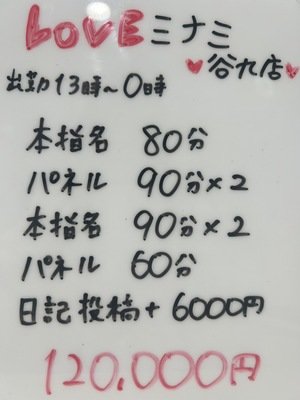 LOVEミナミ
♥谷九店♥
出勤13時~0時
本指名 80分
パネル 90分×2
本指名 90分×2
パネル 60分
日記投稿+6000円
120.000円